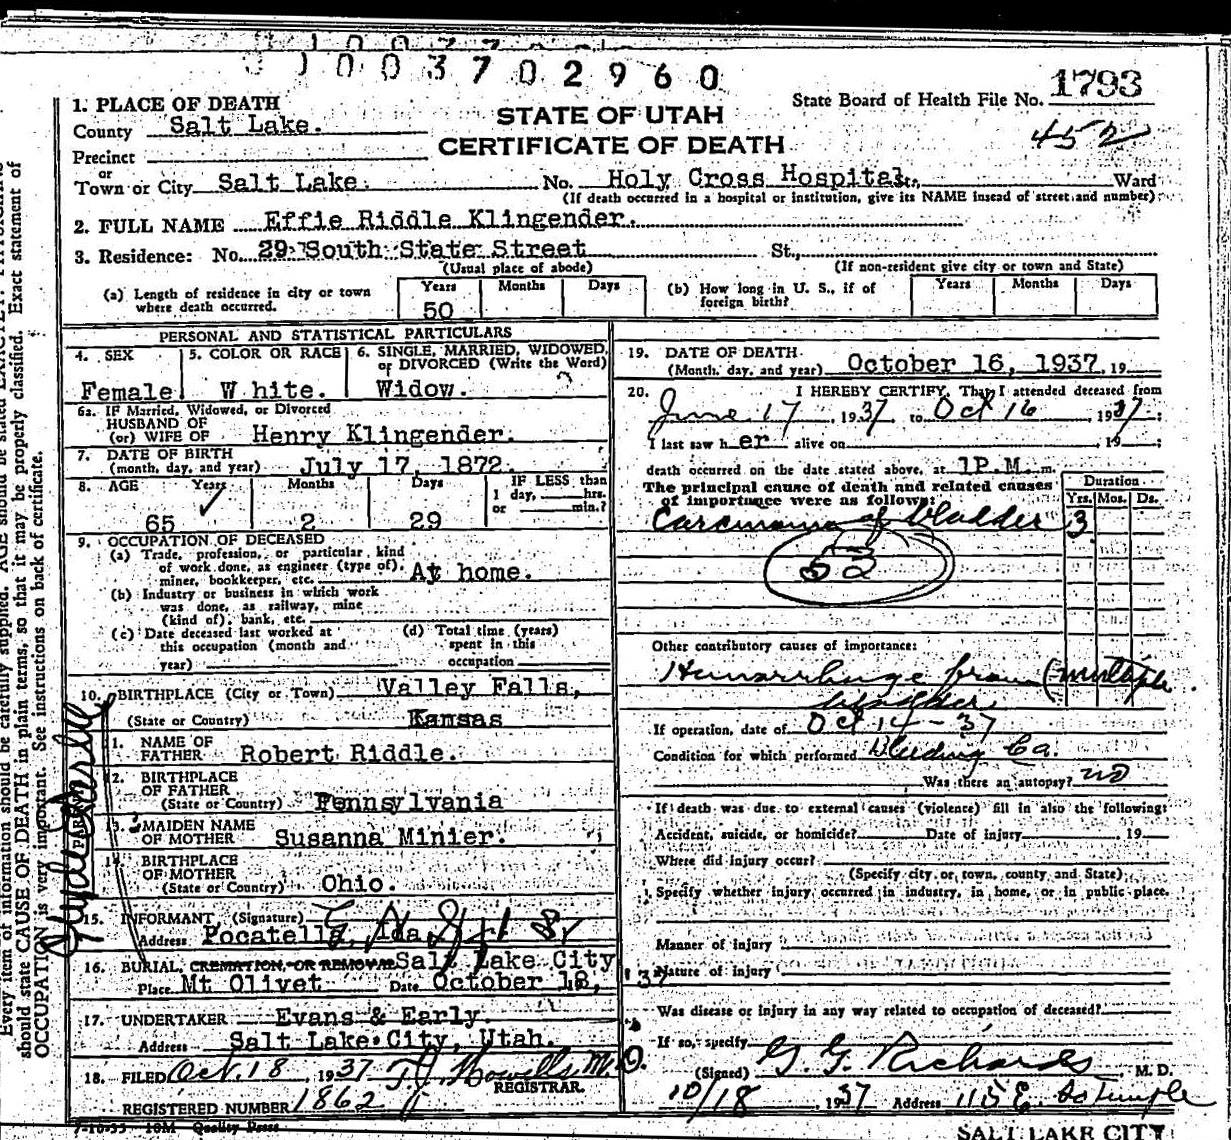 0 1 0 0 3 7 0 2 9 6 0
1793
State Board of Health File No.
452
STATE OF UTAH
CERTIFICATE OF DEATH
1. PLACE OF DEATH
County Salt Lake.
Precinct
or
Town or City Salt Lake. No. Holy Cross Hospital St., Ward
(If death occurred in a hospital or institution, give its NAME insead of street and number)
2. FULL NAME Effie Riddle Klingender.
3. Residence: No. 29 South State Street St.,
(Usual place of abode) (If non-resident give city or town and State)
(a) Length of residence in city or town where death occurred. Years 50 Months Days
(b) How long in U. S., if of foreign birth? Years Months Days
PERSONAL AND STATISTICAL PARTICULARS
4. SEX Female
5. COLOR OR RACE White.
6. SINGLE, MARRIED, WIDOWED, or DIVORCED (Write the Word) Widow.
6a. IF Married, Widowed, or Divorced
HUSBAND OF
(or) WIFE OF Henry Klingender.
7. DATE OF BIRTH
(month, day, and year) July 17, 1872.
8. AGE Years 65 Months 2 Days 29 IF LESS than 1 day, hrs. or min.?
9. OCCUPATION OF DECEASED
(a) Trade, profession, or particular kind
of work done, as engineer (type of),
miner, bookkeeper, etc. At home.
(b) Industry or business in which work
was done, as railway, mine
(kind of), bank, etc.
(c) Date deceased last worked at this occupation (month and year)
(d) Total time (years) spent in this occupation
10. BIRTHPLACE (City or Town) Valley Falls,
(State or Country) Kansas
1. NAME OF
FATHER Robert Riddle.
2. BIRTHPLACE
OF FATHER
(State or Country) Pennsylvania
3. MAIDEN NAME
OF MOTHER Susanna Minier.
14. BIRTHPLACE
OF MOTHER
(State or Country) Ohio.
15. INFORMANT (Signature)
Address Pocatello, Ida
16. BURIAL, CREMATION, OR REMOVAL Salt Lake City
Place Mt Olivet Date October 18, '37
17. UNDERTAKER Evans & Early.
Address Salt Lake City, Utah.
18. FILED Oct. 18, 1937 T.J. Howells M.D.
REGISTRAR.
REGISTERED NUMBER 1862
7-10-35 10M Quality Press
19. DATE OF DEATH
(Month, day, and year) October 16, 1937. 19
20. I HEREBY CERTIFY, That I attended deceased from
June 17, 1937 to Oct 16 1937;
I last saw h er alive on 19 ;
death occurred on the date stated above, at 1P.M. m.
The principal cause of death and related causes
of importance were as follows:
Duration
Yrs. Mos. Ds.
Carcinoma of bladder 3
52
Other contributory causes of importance:
Hemorrhage from (multiple
bladder
If operation, date of Oct 14-37
Condition for which performed Bleeding Ca.
Was there an autopsy? no
If death was due to external causes (violence) fill in also the following:
Accident, suicide, or homicide? Date of injury 19
Where did injury occur?
(Specify city or town, county and State)
Specify whether injury occurred in industry, in home, or in public place.
Manner of injury
Nature of injury
Was disease or injury in any way related to occupation of deceased?
If so, specify
(Signed) G. G. Richards M. D.
10/18, 1937 Address 115 E. So Temple
SALT LAKE CITY
Every item of information should be carefully supplied. AGE should be stated EXACTLY.
should state CAUSE OF DEATH in plain terms, so that it may be properly classified. Exact statement of
OCCUPATION is very important. See instructions on back of certificate.